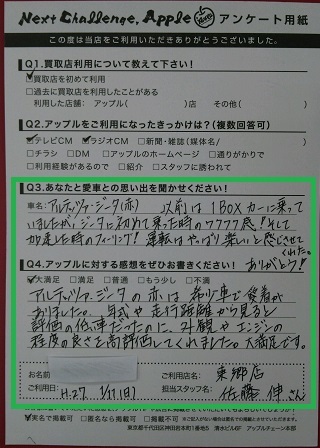 Next Challenge, Apple アンケート用紙
この度は当店をご利用いただきありがとうございました。
Q1.買取店利用について教えて下さい!
買取店を初めて利用
過去に買取店を利用したことがある
利用した店舗: アップル( )店 その他( )
Q2.アップルをご利用になったきっかけは?(複数回答可)
テレビCM ラジオCM 新聞・雑誌(媒体名/ )
チラシ DM アップルのホームページ 通りがかりで
利用経験があるので 紹介 スタッフに誘われて
Q3.あなたと愛車との思い出を聞かせてください!
車名:アルテッツァ・ジータ(赤) 以前は1BOXカーに乗って
いましたが、ジータに初めて乗った時のワクワク感!そして
加速した時のフィーリング!運転はやっぱり楽しいと感じさせて
くれた。
ありがとう!
Q4.アップルに対する感想をぜひお書きください!
大満足 満足 普通 もう少し 不満
アルテッツァ・ジータの赤は希少車で愛着が
ありました。年式や走行距離から見ると
評価の低い車だったのに、外観やエンジンの
程度の良さを高評価してくれました。大満足です。
お名前
ご利用日: H.27 1/11(日)
ご利用店名: 東郷店
担当スタッフ名: 佐藤 伸 さん
実名で掲載可 匿名で掲載可 掲載不可
東京都千代田区神田錦町 清水ビル アップルチェーン本部